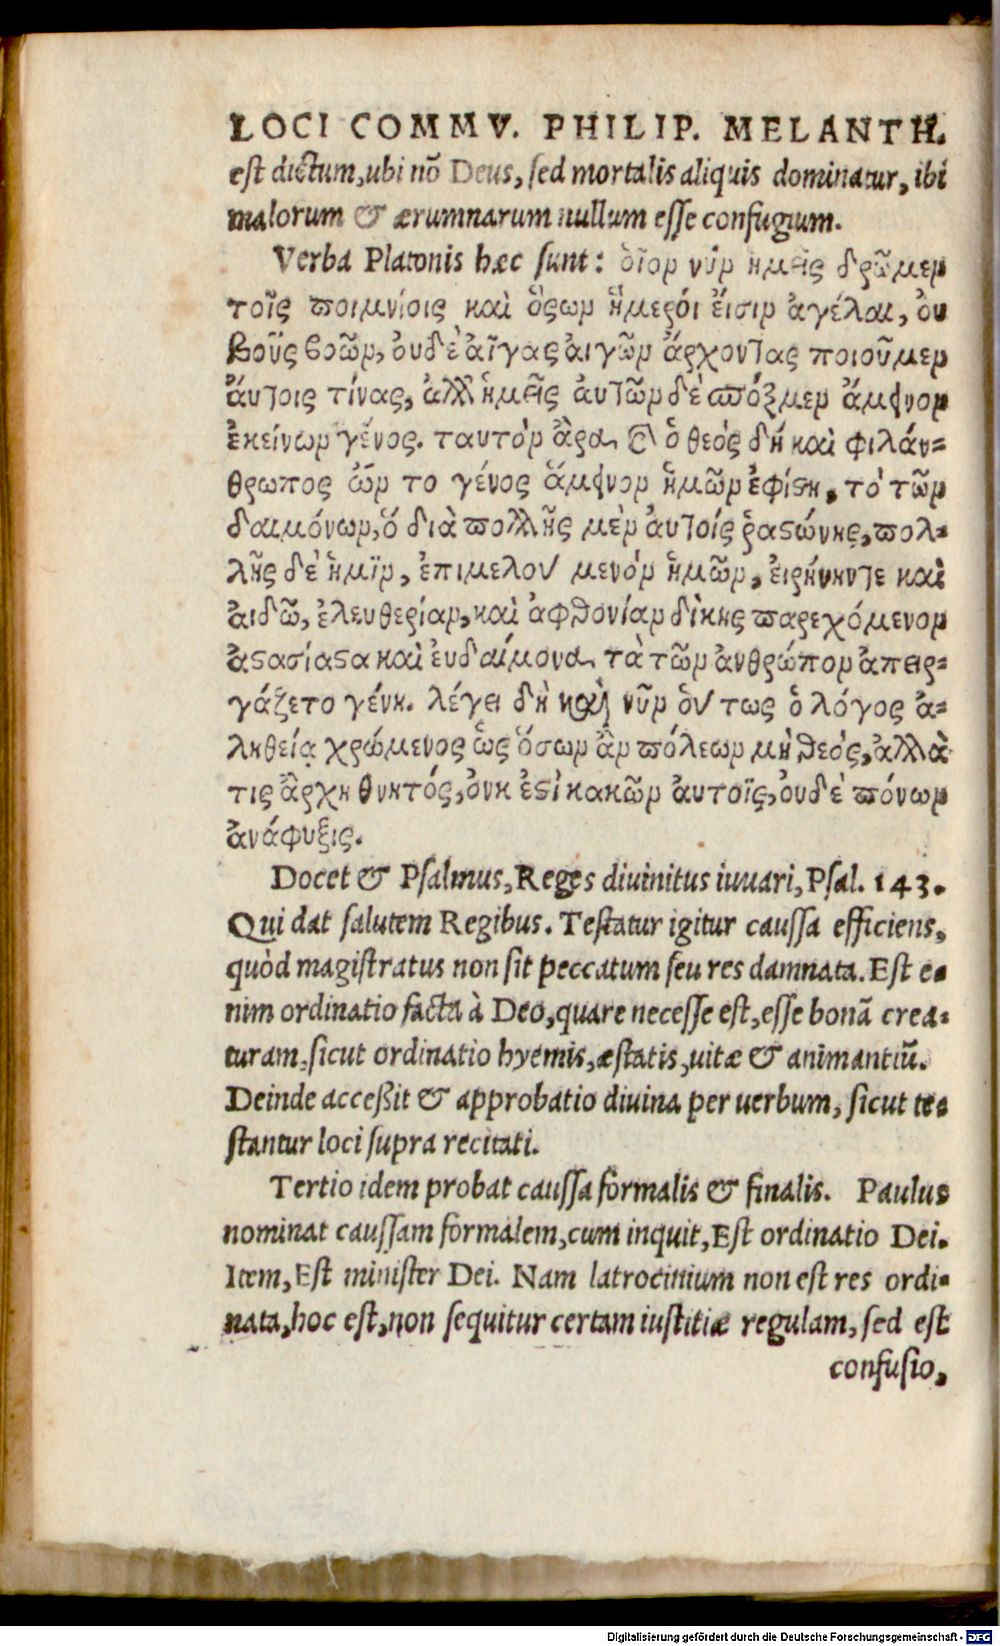 LOCI COMMV. PHILIP. MELANTH.
est dictum, ubi nō Deus, sed mortalis aliquis dominatur, ibi
malorum & ærumnarum nullum esse confugium.
Verba Platonis hæc sunt: ὁῖον νῦν ἡμεῖς δρῶμεν
τοῖς ποιμνίοις καὶ ὅσων ἥμεροί ἔισιν ἀγέλαι, ὀυ
βοῦς βοῶν, ὀυδὲ ἀῖγας ἀιγῶν ἄρχοντας ποιοῦμεν
ἄυτοις τίνας, ἀλλ' ἡμεῖς ἀυτῶν δεσπόζομεν ἄμεινον
ἐκείνων γένος. ταυτὸν ἄρα ὁ θεός δὴ καὶ φιλάν-
θρωπος ὢν το γένος ἄμεινον ἡμῶν ἐφίστη, τὸ τῶν
δαιμόνων, ὅ διὰ πολλῆς μὲν ἀυτοίς ῥαστώνης, πολ-
λῆς δὲ ἡμῖν, ἐπιμελουμενόν ἡμῶν, ἐιρήνηντε καὶ
ἀιδῶ, ἐλευθερίαν, καὶ ἀφθονίαν δίκης παρεχόμενον
ἀστασίαστα καὶ ἐυδαίμονα τὰ τῶν ἀνθρώπον ἀπειρ-
γάζετο γένη. λέγει δὴ καὶ νῦν ὁυτως ὁ λόγος ἀ-
ληθείᾳ χρώμενος ὡς ὅσων ἂν πόλεων μὴ θεός, ἀλλὰ
τις ἄρχη θνητός, ὀυκ ἐστὶ κακῶν ἀυτοῖς, ὀυδὲ πόνων
ἀνάφυξις.
Docet & Psalmus, Reges diuinitus iuuari, Psal. 143.
Qui dat salutem Regibus. Testatur igitur caussa efficiens,
quòd magistratus non sit peccatum seu res damnata. Est e-
nim ordinatio facta à Deo, quare necesse est, esse bonā crea-
turam, sicut ordinatio hyemis, æstatis, uitæ & animantiū.
Deinde acceßit & approbatio diuina per uerbum, sicut te-
stantur loci supra recitati.
Tertio idem probat caussa formalis & finalis. Paulus
nominat caussam formalem, cum inquit, Est ordinatio Dei.
Item, Est minister Dei. Nam latrocinium non est res ordi-
nata, hoc est, non sequitur certam iustitiæ regulam, sed est
confusio,
Digitalisierung gefördert durch die Deutsche Forschungsgemeinschaft - DFG